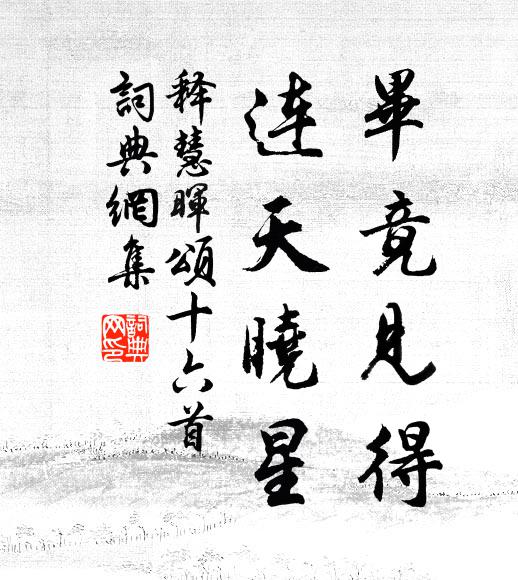 畢竟見得
連天曉星
释慧暉頌十六首
詞典網集
詞典网印